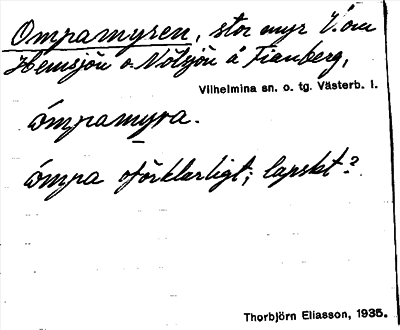 Ompamyren, stor myr V. om
Hemsjön o. Nölsjön å Fianberg,
Vilhelmina sn. o. tg. Västerb. l.
ómpamyra.
ómpa oförklarligt; lapskt?
Thorbjörn Eliasson, 1935.